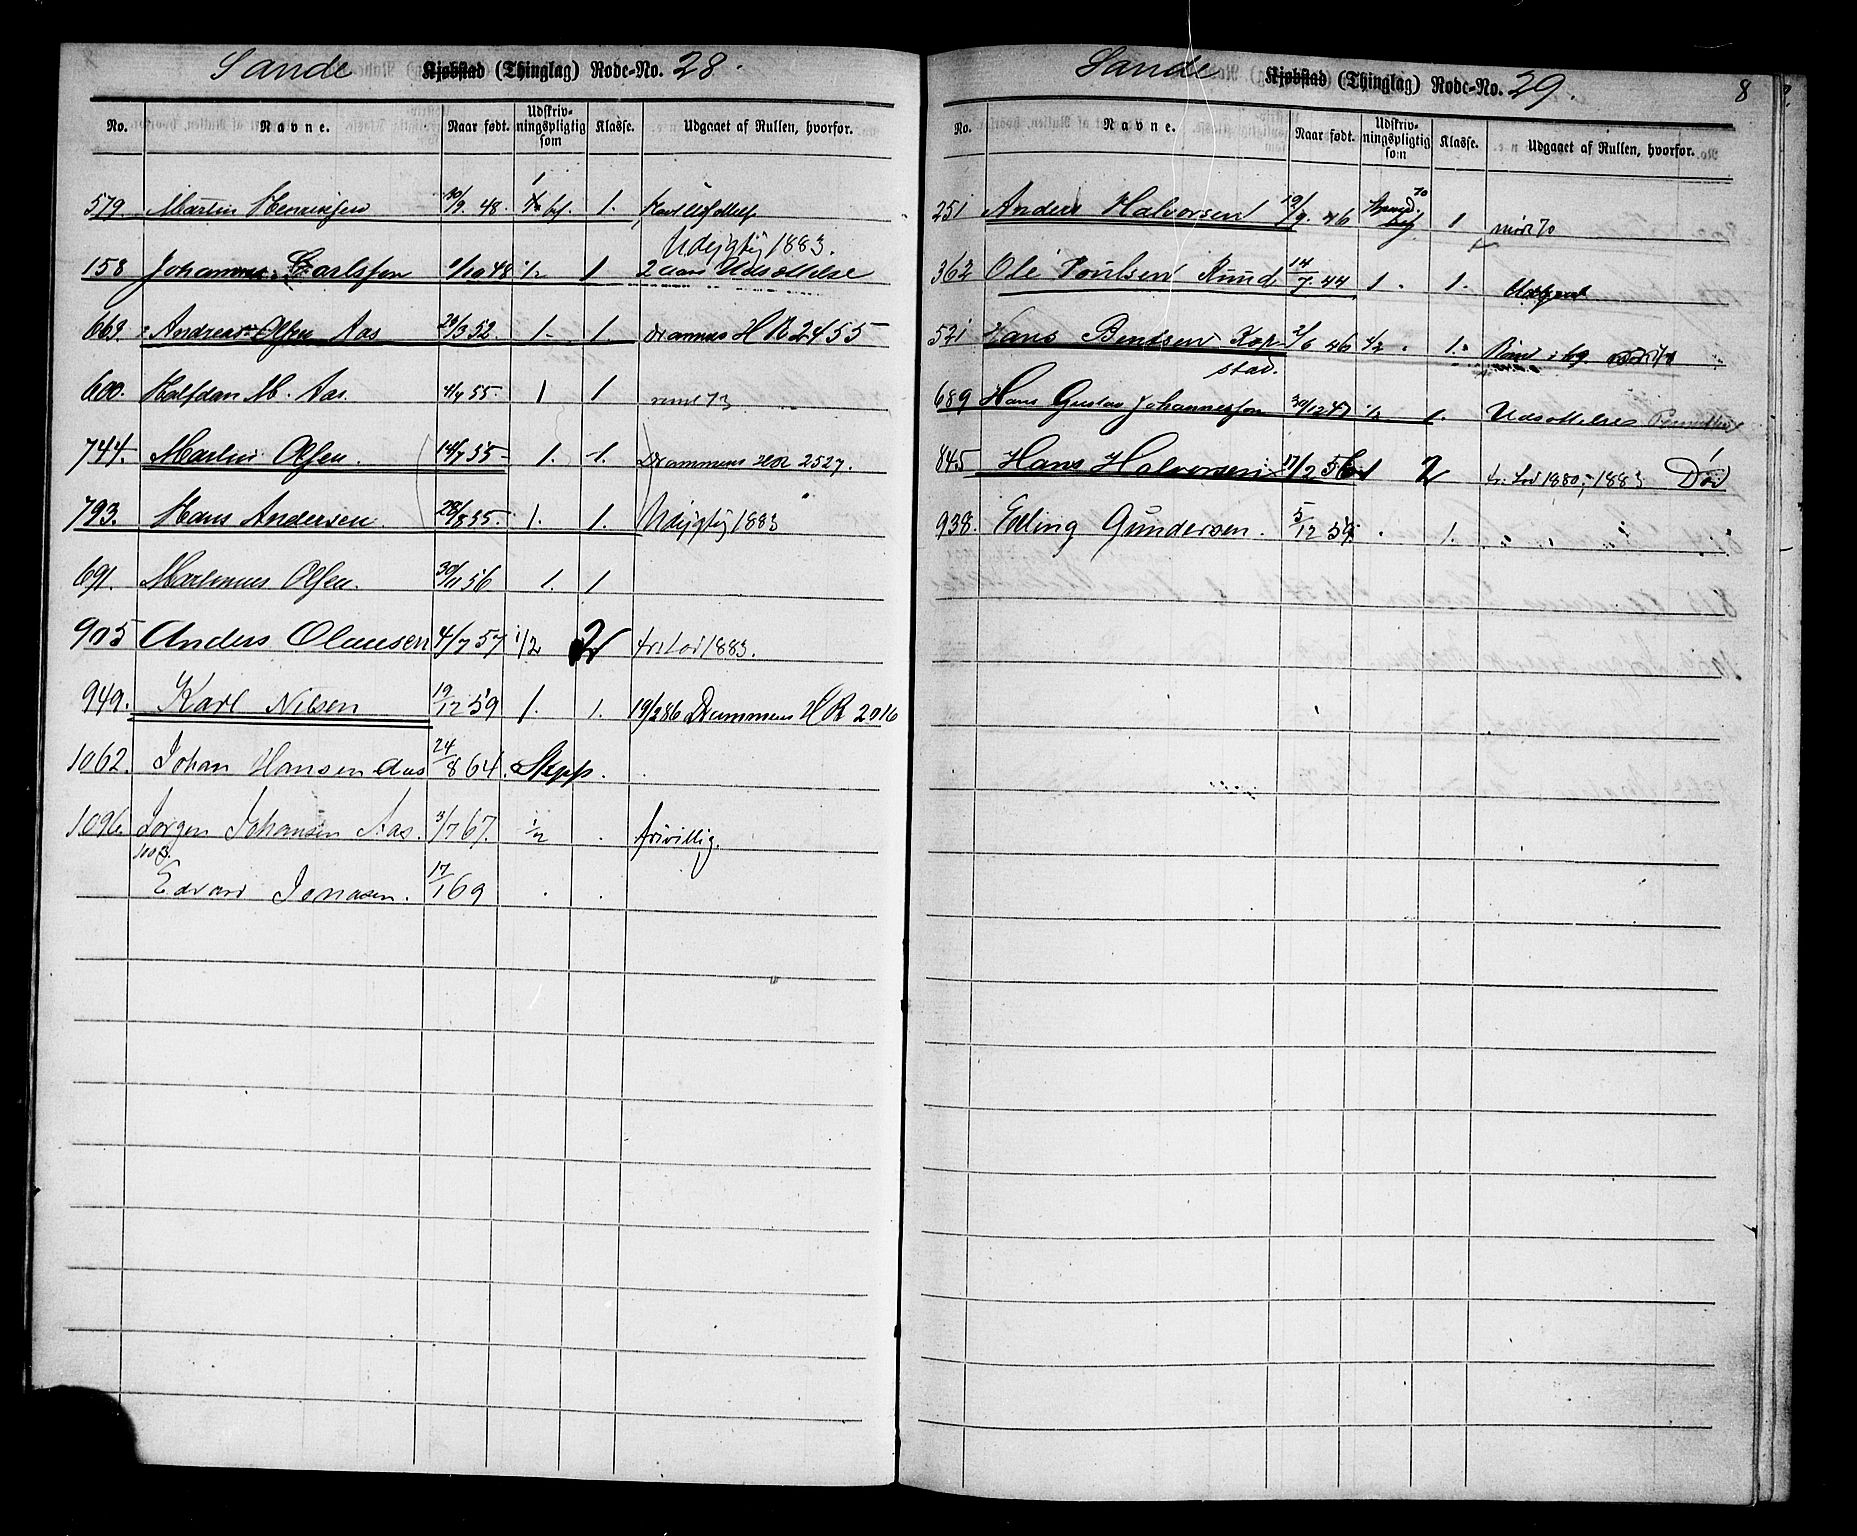 Sande Kjøbstad (Thinglag) Rode-No. 28.
No. Navne. Naar født. Udskrivningspligtig som Klasse. Udgaaet af Rullen, hvorfor.
579. Martin Henriksen 30/9. 48. 1 bf. 1.
Udygtig 1883.
158 Johannes Carlssen 9/10 48 1/2 1 2 aars Udsættelse
669. Andreas Olsen Aas 29/3 52. 1. 1. Drammens HR 2455
600. Halfdan M. Aas. 4/4 55. 1 1
744. Martin Olsen. 14/7 55 1. 1. Drammens HR 2527.
793. Hans Andersen 28/8 55. 1. 1. Udygtig 1883
691. Martinus Olsen. 30/11 56 1. 1
905 Anders Olausen 4/7 57 1/2 2 frilod 1883.
949. Karl Nilsen 19/12 59 1. 1. 19/2 86 Drammens HR 2016
1062. Johan Hansen Aas 24/8 64. Skpp.
1096. Jørgen Johansen Aas. 3/7 67. 1/2 frivillig.
1108.
Edvard Jonasen. 17/1 69
Sande Kjøbstad (Thinglag) Rode-No. 29. 8
No. Navne. Naar født. Udskrivningspligtig som Klasse. Udgaaet af Rullen, hvorfor.
251 Anders Halvorsen 19/9. 46 70 1
362 Ole Poulsen Ruud 14/7. 44 1. 1.
521 Hans Bentsen Kop- 2/6 46 1/2. 1.
stad.
689 Hans Gustav Johannessen 30/12 47 1/2 1. Udsættelse
845 Hans Halvorsen 17/2 56 1 2 fr. Lod 1880, 1883 Død
938. Edling Gundersen. 5/12 59. 1.